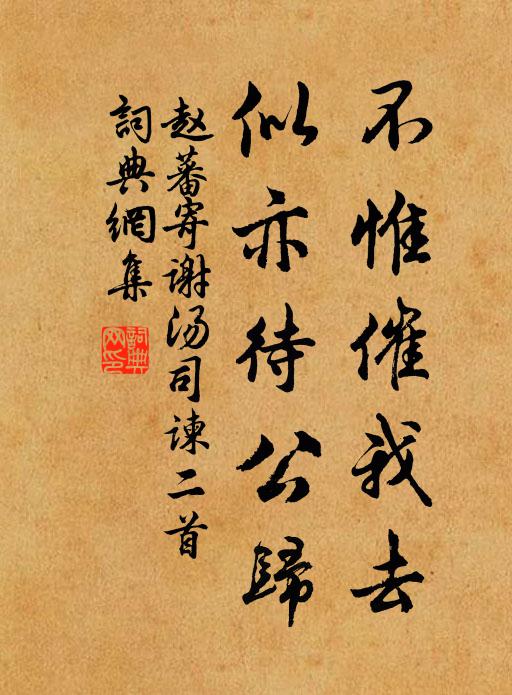 不惟催我去
似亦待公歸
赵蕃寄谢汤司谏二首
詞典網集
詞典网印